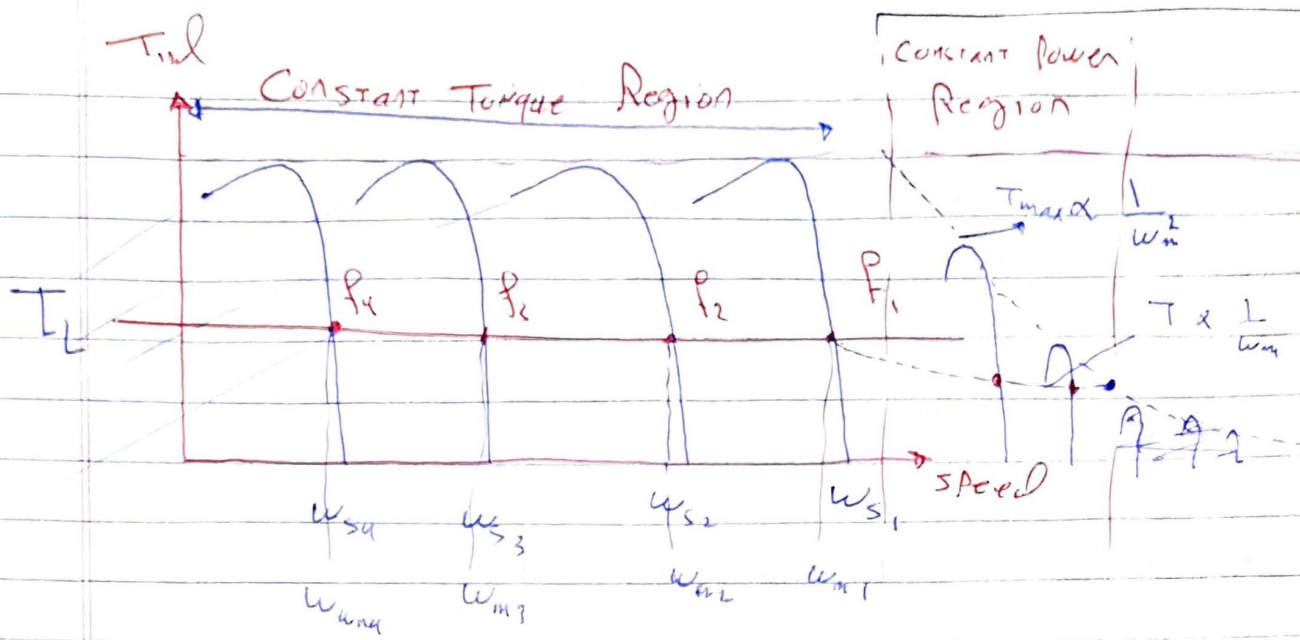 Tind
Constant Torque Region
Constant Power
Region
Tmax ∝ 1/ωm²
TL
f4
f3
f2
f1
T ∝ 1/ωm
speed
ωs4
ωs3
ωs2
ωs1
ωm4
ωm3
ωm2
ωm1